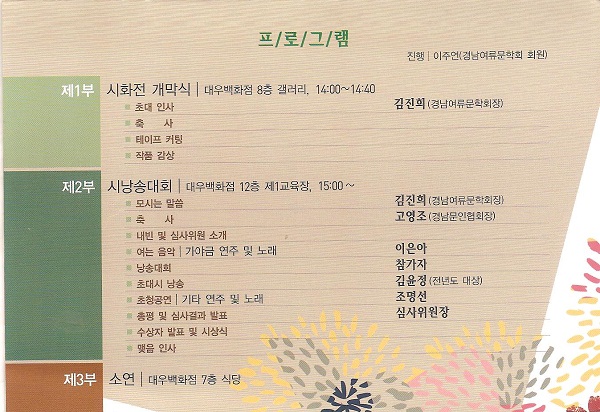 프/로/그/램
진행 | 이주언(경남여류문학회 회원)
제1부 시화전 개막식 | 대우백화점 8층 갤러리, 14:00~14:40
초대 인사 김진희(경남여류문학회장)
축 사
테이프 커팅
작품 감상
제2부 시낭송대회 | 대우백화점 12층 제1교육장, 15:00~
모시는 말씀 김진희(경남여류문학회장)
축 사 고영조(경남문인협회장)
내빈 및 심사위원 소개
여는 음악 | 가야금 연주 및 노래 이은아
낭송대회 참가자
초대시 낭송 김윤정(전년도 대상)
초청공연 | 기타 연주 및 노래 조명선
총평 및 심사결과 발표 심사위원장
수상자 발표 및 시상식
맺음 인사
제3부 소연 | 대우백화점 7층 식당